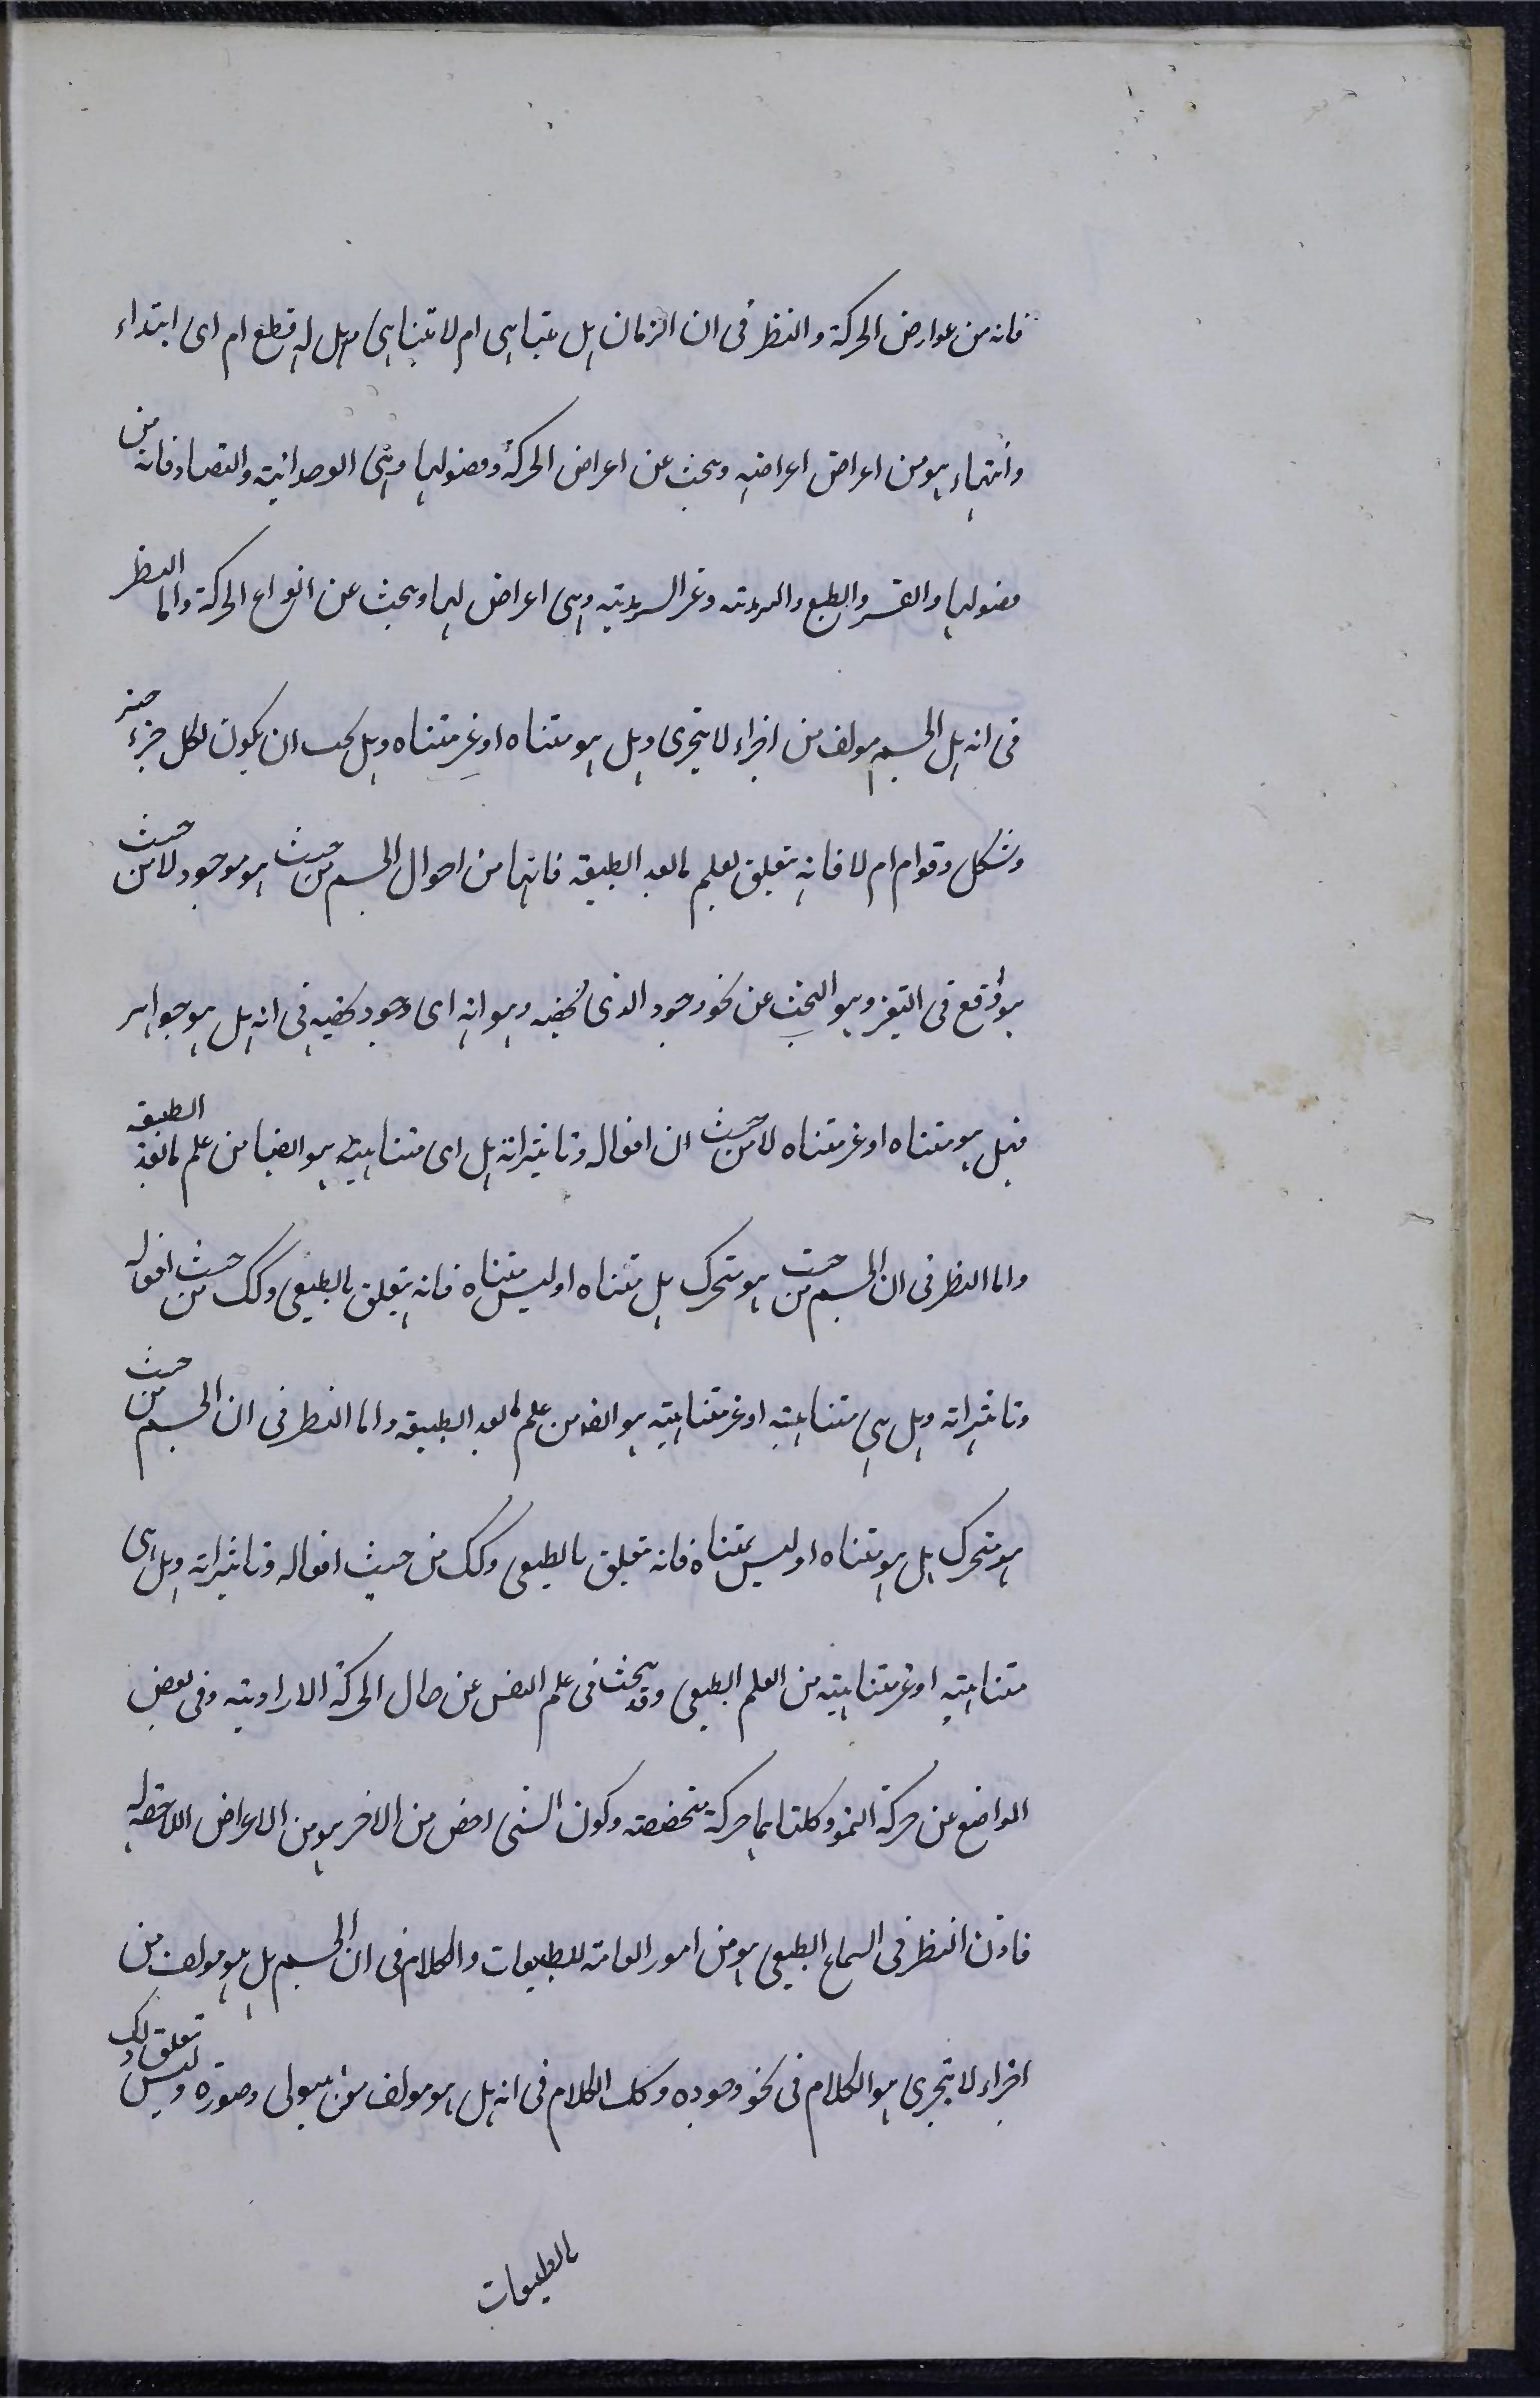 فانه من عوارض الحركة والنظر فى ان الزمان هل يتناهى ام لا يتناهى وهل له قطع ام اى ابتداء
وانتهاء هو من اعراض اعراضه وبحث عن اعراض الحركة وفصولها وهى الوحدانية والتضاد فانه من
فصولها والقسر والطبع والسرمدية وغير السرمدية وهى اعراض لها وبحث عن انواع الحركة واما النظر
فى انه هل الجسم مولف من اجزاء لا يتجزى وهل هو متناه او غير متناه وهل يجب ان يكون لكل جزء حيز
وشكل وقوام ام لا فانه يتعلق بعلم مابعد الطبيعة فانها من احوال الجسم من حيث هو موجود لا من حيث
هو واقع فى التغير وهو البحث عن نحو وجود الذى يخصه وهو انه اى وجود يخصه فى انه هل هو جواهر
فهل هو متناه او غير متناه لا من حيث ان افعاله وتاثيراته هل اى متناهية هو ايضا من علم مابعد الطبيعة
واما النظر فى ان الجسم من حيث هو متحرك هل متناه او ليس متناه فانه يتعلق بالطبيعى وكك من حيث افعاله
وتاثيراته وهل هى متناهية او غير متناهية هو ايضا من علم مابعد الطبيعة واما النظر فى ان الجسم من حيث
هو متحرك هل هو متناه او ليس بمتناه فانه يتعلق بالطبيعى وكك من حيث افعاله وتاثيراته وهل هى
متناهية او غير متناهية من العلم الطبيعى وقد يبحث فى علم النفس عن حال الحركة الارادية وفى بعض
المواضع عن حركة النمو وكلتاهما حركة متخصصة وكون الشئ اخص من الاخر هو من الاعراض اللاحقة له
فاذن النظر فى السماع الطبيعى هو من امور العامة للطبيعيات والكلام فى ان الجسم هل هو مولف من
اجزاء لا يتجزى هو الكلام فى نحو وجوده وكك الكلام فى انه هل هو مولف من هيولى وصورة وليس تعلق ذلك
بالطبيعيات